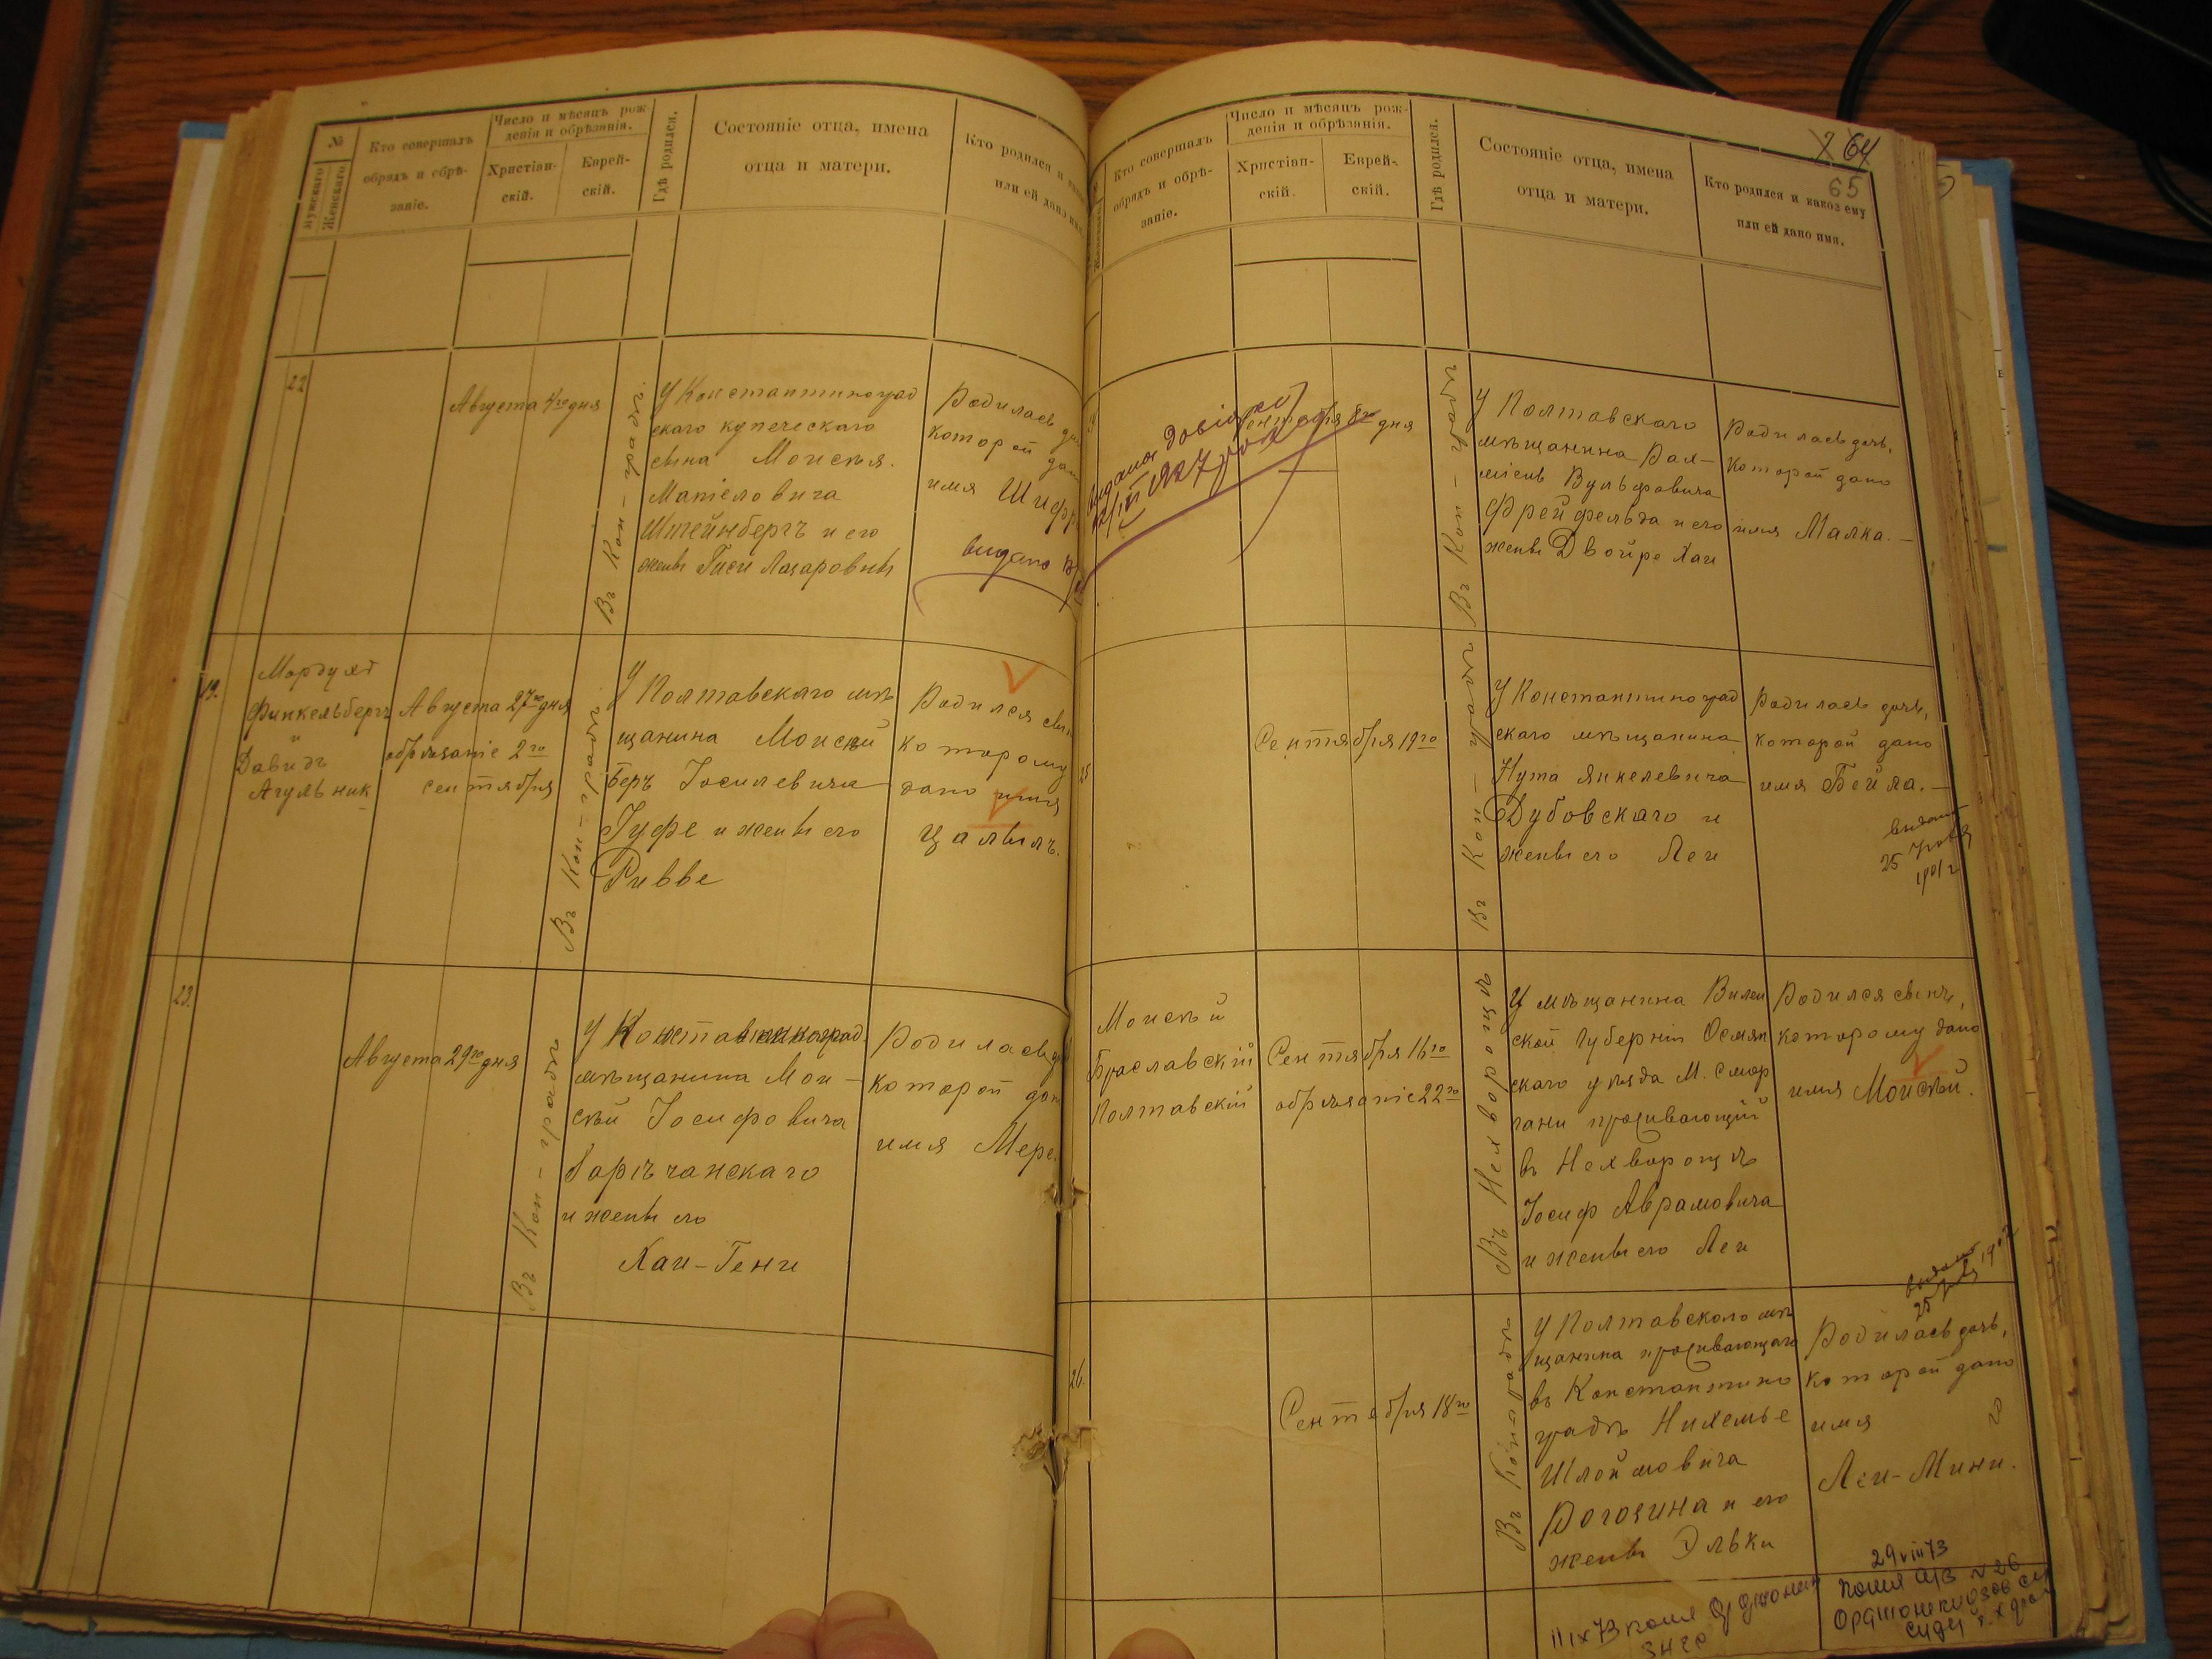 №
Мужскаго
Женскаго
Кто совершалъ
обрядъ и обрѣ-
заніе.
Число и мѣсяцъ рож-
денія и обрѣзанія.
Христіан-
скій.
Еврей-
скій.
Гдѣ родился.
Состояніе отца, имена
отца и матери.
Кто родился и
или ей дано
22
Августа 4го дня
Въ Кон-градѣ
У Константиноград
скаго купеческаго
сына Моисея
Штейнбергъ и его
жены Гиси Лазаровны
Родилась
которой
имя
видано
19.
Мордухъ
Финкельбергъ
и
Давидъ
Агульник
Августа 27го дня
обрѣзаніе 2го
сентября
Въ Кон-градѣ
У Полтавскаго мѣ
щанина Моисей
Беръ Іосилевича
Гуфе и жены его
Ривве
Родился сын
которому
дано имя
Цалылъ.
23.
Августа 29го дня
Въ Кон-градѣ
У Константиноград
мѣщанина Мои-
сѣй Іосифовича
и жены его
Хаи-Гени
Родилась
которой
имя Мере
Х 64
65
Кто совершалъ
обрядъ и обрѣ-
заніе.
Число и мѣсяцъ рож-
денія и обрѣзанія.
Христіан-
скій.
Еврей-
скій.
Гдѣ родился.
Состояніе отца, имена
отца и матери.
Кто родился и какое ему
или ей дано имя.
довідку
1927
Сентября 8го дня
Въ Кон-градѣ
У Полтавскаго
мѣщанина
Вульфовича
Фрейфельда и его
жены Двойре Хаи
Родилась дочь,
которой дано
имя Малка.-
25
Сентября 19го
Въ Кон-градѣ
У Константиноград
скаго мѣщанина
Нута Янкелевича
Дубовскаго и
жены его Леи
Родилась дочь,
которой дано
имя Бейла.-
25
1901 г
Моисѣй
Браславскій
Полтавскій
Сентября 16го
обрѣзаніе 22го
Въ Нехворощѣ
У мѣщанина Вилен
ской Губерніи Осмян
скаго уѣзда М. Смор
гани проживающій
въ Нехворощѣ
Іосиф Аврамовича
и жены его Леи
Родился сынъ,
которому дано
имя Моисѣй.
25
26.
Сентебря 18го
У Полтавскаго мѣ
щанина проживающаго
въ Константино
градѣ Нихемье
Шлоймовича
Рогозина и его
жены Эльки
Родилась дочь,
которой дано
имя
Леи-Мини.
11 IX 73 копия
29 VIII 73
копия а/з № 26